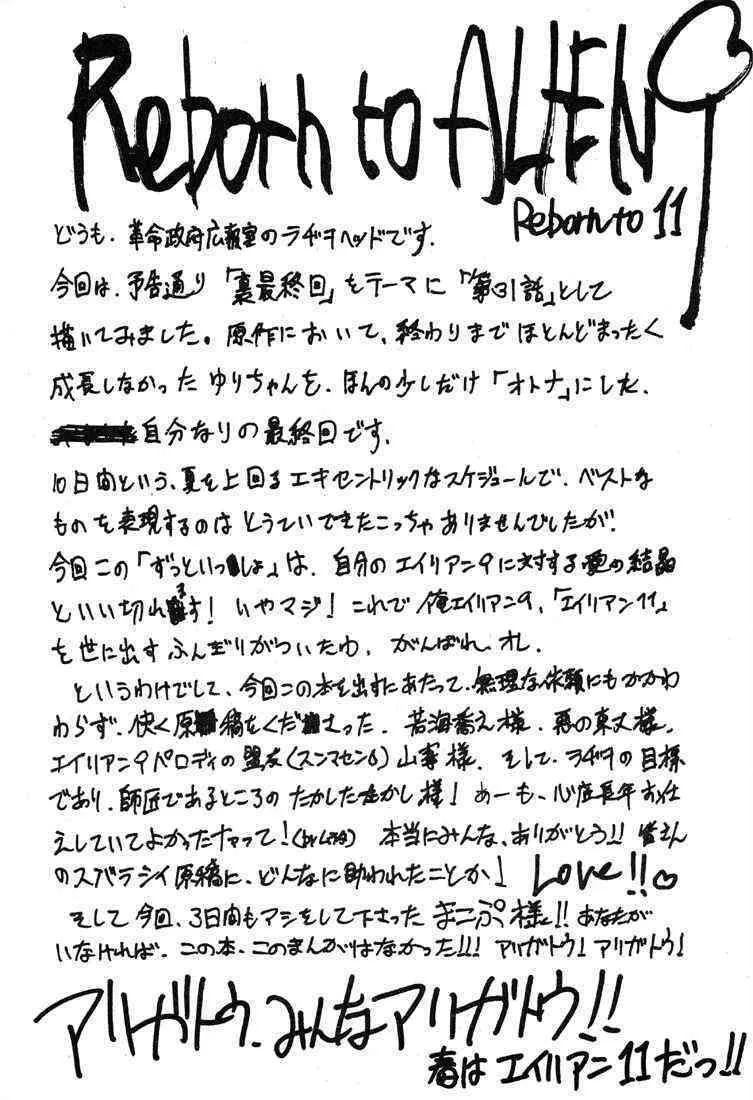 Reborn to ALIEN9
Reborn to 11
どうも、革命政府広報室のラヂヲヘッドです。
今回は、予告通り「裏最終回」をテーマに「第31話」として
描いてみました。原作において、終わりまでほとんどまったく
成長しなかったゆりちゃんを、ほんの少しだけ「オトナ」にした、
自分なりの最終回です。
10日間という、夏を上回るエキセントリックなスケジュールで、ベストな
ものを表現するのはとうていできたこっちゃありませんでしたが、
今回この「ずっといっしょ」は、自分のエイリアン9に対する愛の結晶
といい切れます！いやマジ！これで俺エイリアン9、「エイリアン11」
を世に出すふんぎりがついたわ、がんばれ、オレ。
というわけでして、今回この本を出すにあたって、無理な依頼にもかかわ
わらず、快く原稿をくださった、若海喬え様、悪の東丈様、
エイリアン9パロディの盟友(スンマセン6)山寨様、そして、ラヂヲの目標
であり、師匠であるところのたかしたたかし様！あーも、心底長年お仕
えしていてよかったナァって！ 本当にみんな、ありがとう!! 皆さん
のスバラシイ原稿に、どんなに助われたことか！ Love!!♡
そして今回、3日間もアシをして下さったまこぷ様!! あなたが
いなければ、この本、このまんがはなかった!!! アリガトウ！アリガトウ！
アリガトウ、みんなアリガトウ!!
春はエイリアン11だっ!!